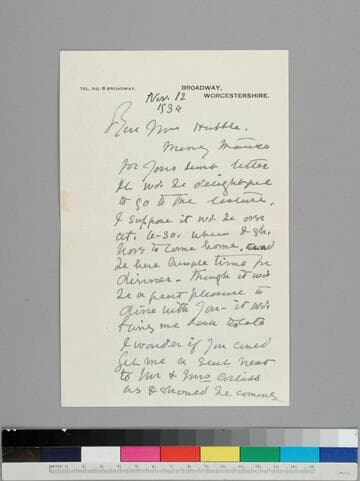 TEL. NO. 6 BROADWAY.
BROADWAY,
WORCESTERSHIRE.
Nov. 12
1934
Dear Mrs Hubble.
Many thanks
for your letter
It wd. be delightful
to go to the lecture.
I suppose it wd. be over
at. 6-30. when I sh.
have to come home, and
be here ample time for
dinner. though it wd
be a great pleasure to
dine with you - it wd.
bring me back too late
I wonder if you could
get me a seat next
to Mr & Mrs Corliss
as I should be coming